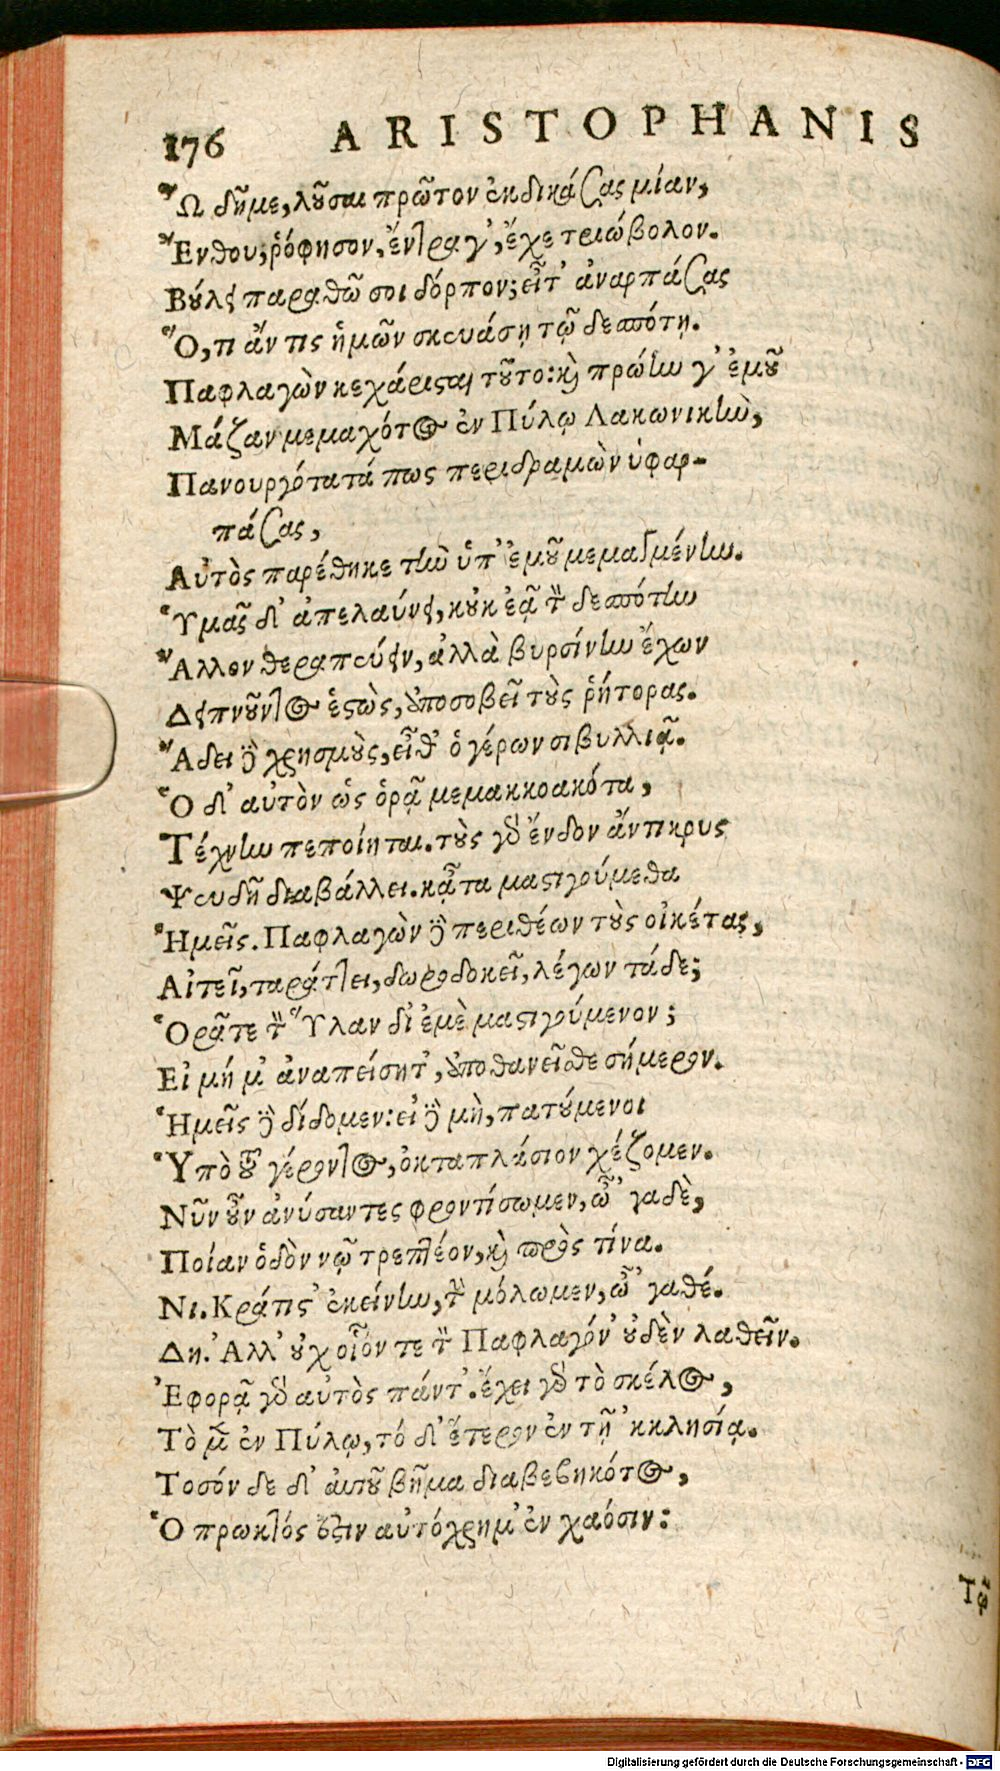 176 ARISTOPHANIS
Ὦ δῆμε, λοῦσαι πρῶτον ἐκδικάσας μίαν,
Ἔνθου, ῥόφησον, ἔντραγ', ἔχε τριώβολον.
Βούλει παραθῶ σοι δόρπον; εἶτ' ἀναρπάσας
Ὅ, τι ἄν τις ἡμῶν σκευάσῃ τῷ δεσπότῃ.
Παφλαγὼν κεχάρισται τοῦτο: καὶ πρώην γ' ἐμοῦ
Μάζαν μεμαχότος ἐν Πύλῳ Λακωνικὴν,
Πανουργότατά πως περιδραμὼν ὑφαρ-
πάσας,
Αὐτὸς παρέθηκε τὴν ὑπ' ἐμοῦ μεμαγμένην.
Ὑμᾶς δ' ἀπελαύνει, κοὐκ ἐᾷ τὸν δεσπότην
Ἄλλον θεραπεύειν, ἀλλὰ βυρσίνην ἔχων
Δειπνοῦντος ἑστὼς, ἀποσοβεῖ τοὺς ῥήτορας.
Ἄδει δὲ χρησμοὺς, εἶθ' ὁ γέρων σιβυλλιᾷ.
Ὁ δ' αὐτὸν ὡς ὁρᾷ μεμακκοακότα,
Τέχνην πεποίηται. τοὺς γὰρ ἔνδον ἄντικρυς
Ψευδῆ διαβάλλει. κᾆτα μαστιγούμεθα
Ἡμεῖς. Παφλαγὼν δὲ περιθέων τοὺς οἰκέτας,
Αἰτεῖ, ταράττει, δωροδοκεῖ, λέγων τάδε;
Ὁρᾶτε τὸν Ὕλαν δι' ἐμὲ μαστιγούμενον;
Εἰ μή μ' ἀναπείσητ', ἀποθανεῖσθε σήμερον.
Ἡμεῖς δὲ δίδομεν: εἰ δὲ μὴ, πατούμενοι
Ὑπὸ τοῦ γέροντος, ὀκταπλάσιον χέζομεν.
Νῦν οὖν ἀνύσαντες φροντίσωμεν, ὦ' γαδὲ,
Ποίαν ὁδὸν νῷ τρεπτέον, καὶ πρὸς τίνα.
Νι. Κράτιστ' ἐκείνην, τὴν μόλωμεν, ὦ' γαθέ.
Δη. Ἀλλ' οὐχ οἷόν τε τὸν Παφλαγόν' οὐδὲν λαθεῖν.
Ἐφορᾷ γὰρ αὐτὸς πάντ'. ἔχει γὰρ τὸ σκέλος,
Τὸ μὲν ἐν Πύλῳ, τό δ' ἕτερον ἐν τῇ 'κκλησίᾳ.
Τοσόν δε δ' αὐτοῦ βῆμα διαβεβηκότος,
Ὁ πρωκτός ἐστιν αὐτόχρημ' ἐν χαόσιν:
Τὼ
Digitalisierung gefördert durch die Deutsche Forschungsgemeinschaft - DFG